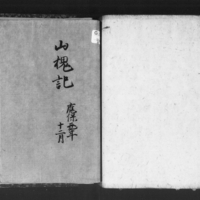 山槐記
應保元年
十二月